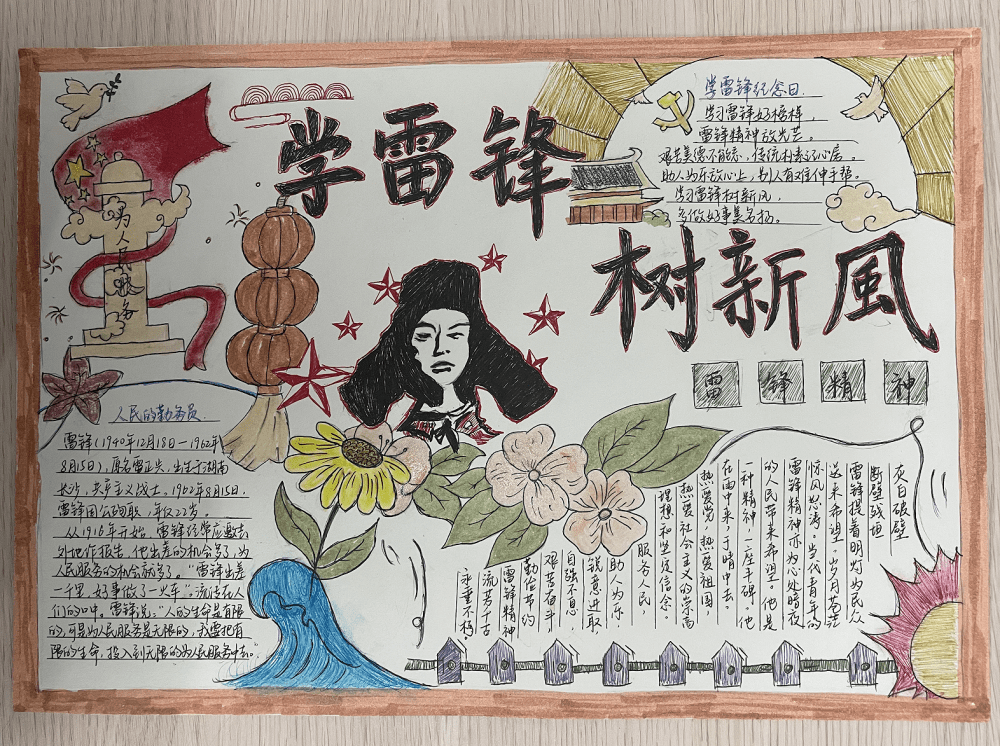 学雷锋
树新風
为人民服务
学雷锋纪念日
学习雷锋好榜样，
雷锋精神放光芒。
艰苦美德不能忘，传统朴素记心房。
助人为乐放心上，别人有难伸手帮。
学习雷锋树新风，
多做好事美名扬。
雷锋精神
人民的勤务员
雷锋（1940年12月18日－1962年
8月15日），原名雷正兴，出生于湖南
长沙，共产主义战士。1962年8月15日，
雷锋因公殉职，年仅22岁。
从1918年开始，雷锋经常应邀去
外地作报告，他出差的机会多了，为
人民服务的机会就多了。“雷锋出差
一千里，好事做了一火车”。流传在人
们的口中，雷锋说：“人的生命是有限
的，可是为人民服务是无限的，我要把有
限的生命，投入到无限的为人民服务中去。”
灰白破壁
断壁残垣
雷锋提着明灯为民众
送来希望。岁月苍茫
惊风怒涛。当代青年的
雷锋精神亦为心处暗夜
的人民带来希望。他是
一种精神，一座丰碑。他
在雨中来，于晴中去。
热爱党，热爱祖国，
热爱社会主义的崇高
理想和坚定信念。
服务人民，
助人为乐
锐意进取
自强不息
艰苦奋斗，
勤俭节约
雷锋精神
流芳千古
永垂不朽。